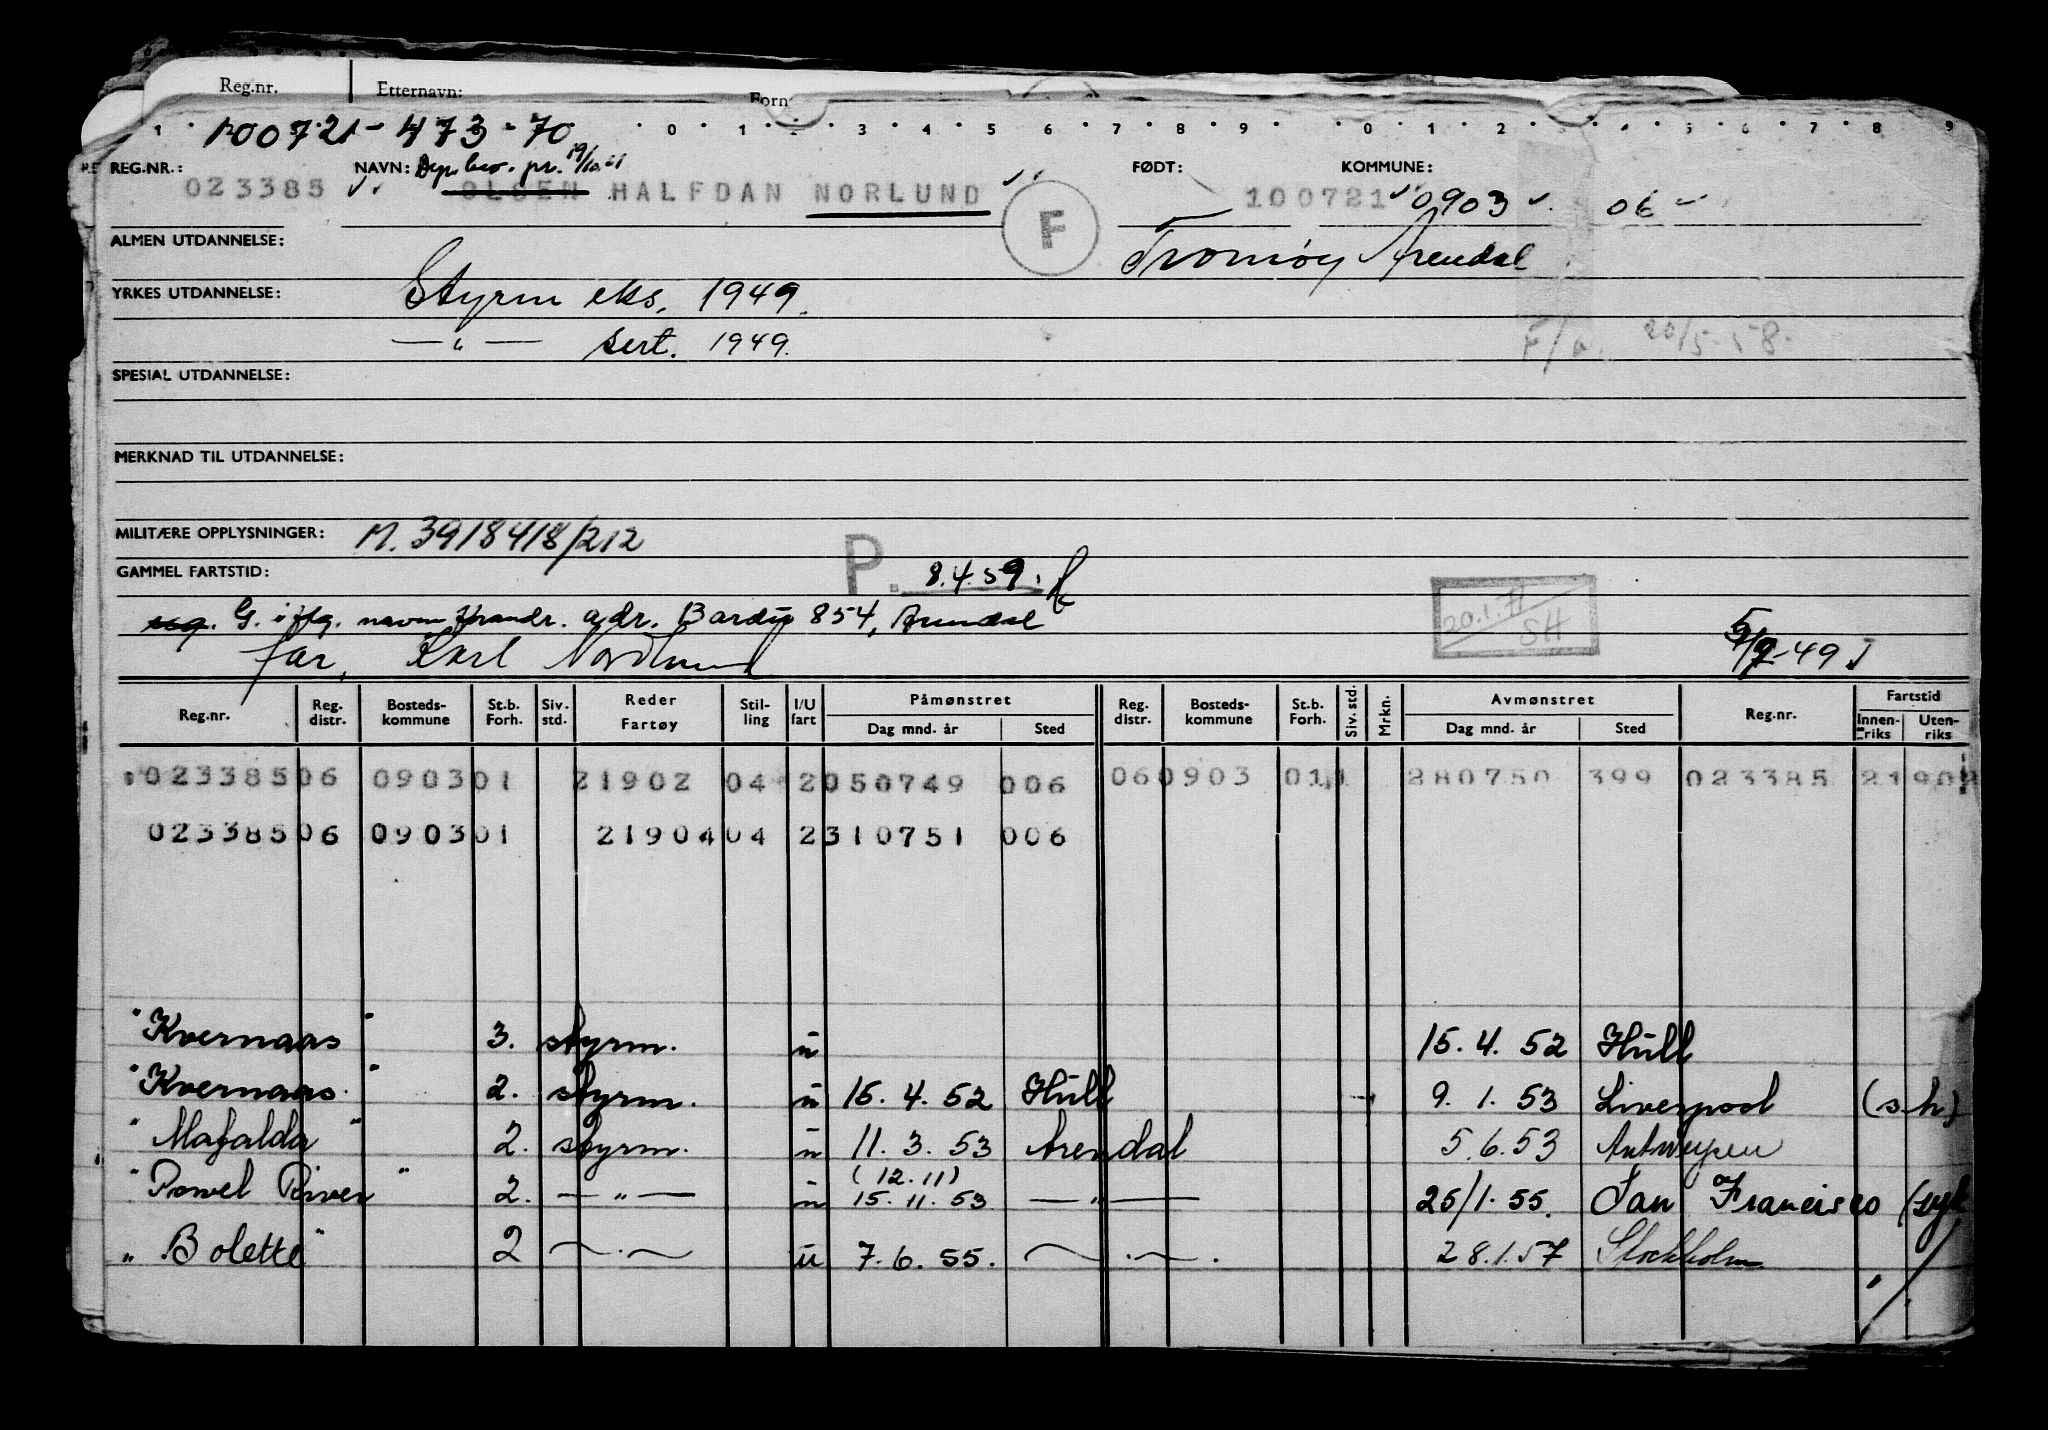 Reg.nr. Etternavn: Forn
100721-473-70
1 0 1 2 3 4 5 6 7 8 9 0 1 2 5 6 7 8 9
REG.NR.: NAVN: pr. 19/10 61 FØDT: KOMMUNE:
023385 OLSEN HALFDAN NORLUND F 100721 0903 06
ALMEN UTDANNELSE: Tromøy Arendal
YRKES UTDANNELSE: Styrm eks. 1949.
—"— sert. 1949. 20/5-58.
SPESIAL UTDANNELSE:
MERKNAD TIL UTDANNELSE:
MILITÆRE OPPLYSNINGER: M. 3918418/212
GAMMEL FARTSTID: P. 8.4.59.
G. i flg. navn adr. 854, Arendal 20.1.71 SH
far, Karl Nordlund 5/9-49
Reg.nr. Reg. distr. Bosteds-kommune St.b. Forh. Siv. std. Reder Fartøy Stil-ling I/U fart Påmønstret Dag mnd. år Sted Reg. distr. Bosteds-kommune St.b. Forh. Siv. std. Mrkn. Avmønstret Dag mnd. år Sted Reg.nr. Fartstid Innen-riks Uten-riks
023385 06 0903 01 21902 04 2 050749 006 06 0903 01 1 280750 399 023385 21 902
023385 06 0903 01 21904 04 2 310751 006
"Kvernaas" 3. styrm. u 15.4.52 Hull
"Kvernaas" 2. styrm. u 15.4.52 Hull 9.1.53 Liverpool (s.h)
"Mafalda" 2. styrm. u 11.3.53 Arendal 5.6.53 Antwerpen
"Powel River" 2. —"— u (12.11) 15.11.53 —"— 25/1.55. San Francisco (syk
"Bolette" 2 —"— u 7.6.55. —"— 28.1.57 Stockholm